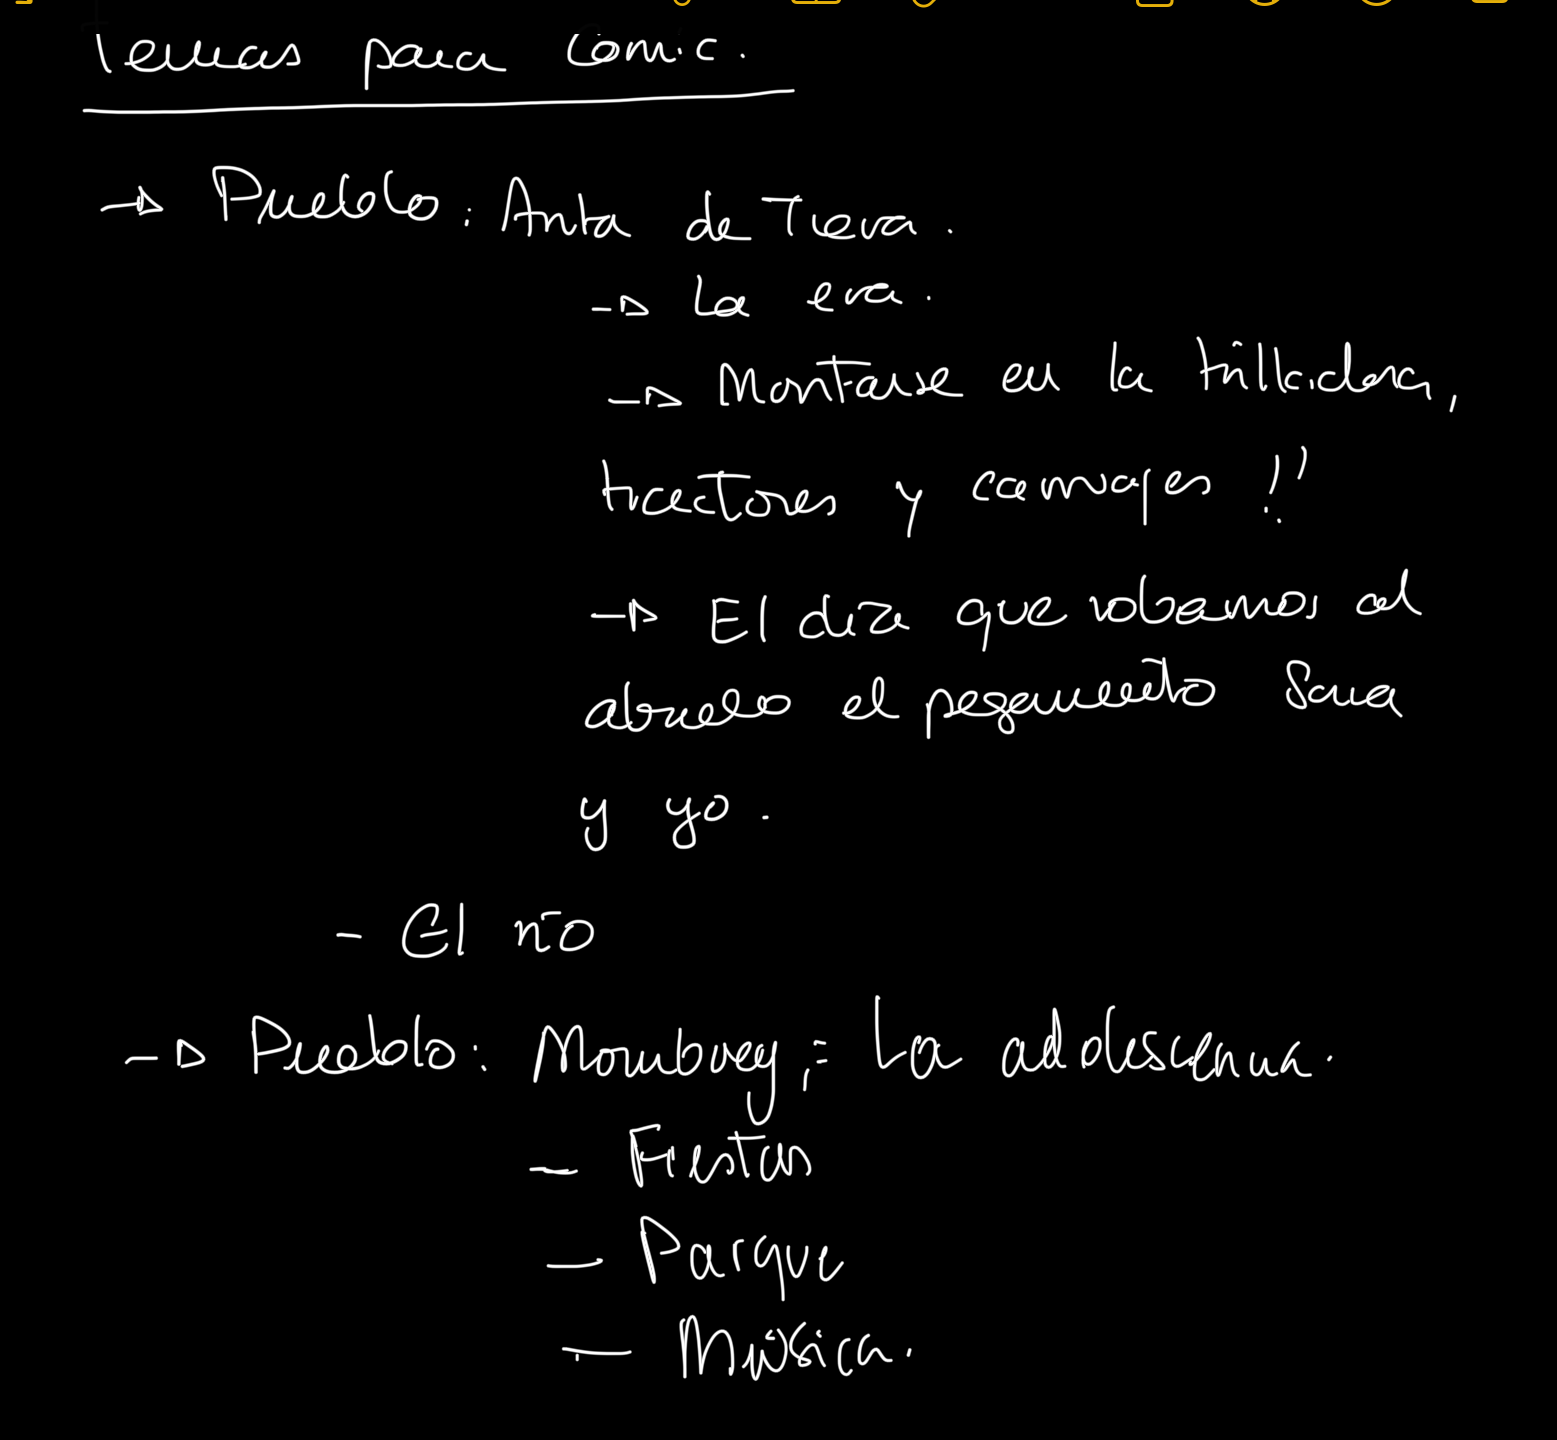 Temas para comic.
→ Pueblo: Anta de Tera.
→ La era.
→ Montarse en la trilladora,
tractores y carruajes !!
→ El día que robamos al
abuelo el pegamento Sara
y yo.
- El río
→ Pueblo: Mombuey, = La adolescencia.
- Fiestas
- Parque
- Música.